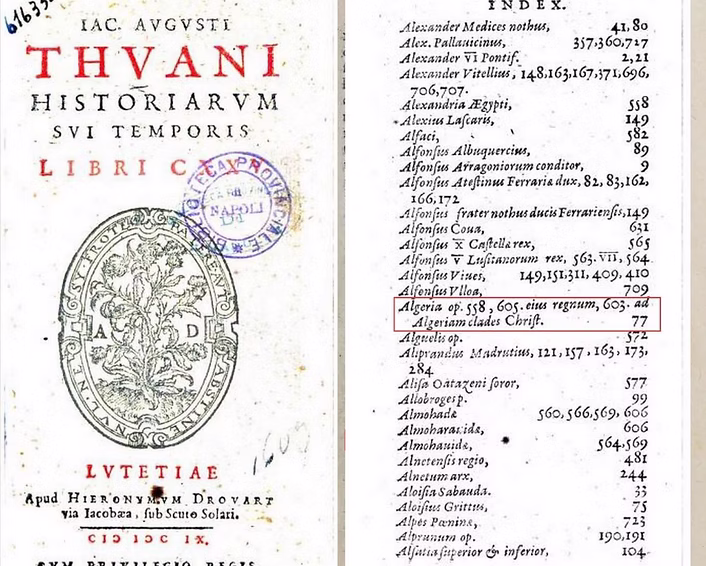 IAC. AVGVSTI
THVANI
HISTORIARVM
SVI TEMPORIS
LIBRI
NAPOLI
A D
LVTETIAE
Apud HIERONYMVM DROVART
via Iacobæa, sub Scuto Solari.
CIƆ IƆC IX.
CVM PRIVILEGIO REGIS
INDEX.
Alexander Medices nothus, 41,80
Alex. Pallauicinus, 357,360,727
Alexander VI Pontif. 2,21
Alexander Vitellius, 148,163,167,371,696,
706,707.
Alexandria Ægypti, 558
Alexius Lascaris, 149
Alfaci, 582
Alfonsus Albuquercius, 89
Alfonsus Arragoniorum conditor, 9
Alfonsus Atestinus Ferrariæ dux, 82, 83,162,
166,172
Alfonsus frater nothus ducis Ferrariensis,149
Alfonsus Coua, 631
Alfonsus X Castellæ rex, 565
Alfonsus V Lusitanorum rex, 563. VII, 564
Alfonsus Viues, 149,151,311, 409, 410
Alfonsus Vlloa, 709
Algeria op. 558, 605. eius regnum, 603. ad
Algeriam clades Christ. 77
Alguelis op. 572
Aliprandus Madrutius, 121, 157, 163, 173,
284
Alisa Oatazeni soror, 577
Allobroges p. 99
Almohadæ 560, 566, 569, 606
Almoharauidæ, 606
Almohauidæ, 564,569
Alnetensis regio, 481
Alnetum arx, 244
Aloisia Sabauda. 33
Aloisius Grittus, 75
Alpes Pœninæ, 723
Alprunum op. 190,191
Alsatia superior & inferior, 104